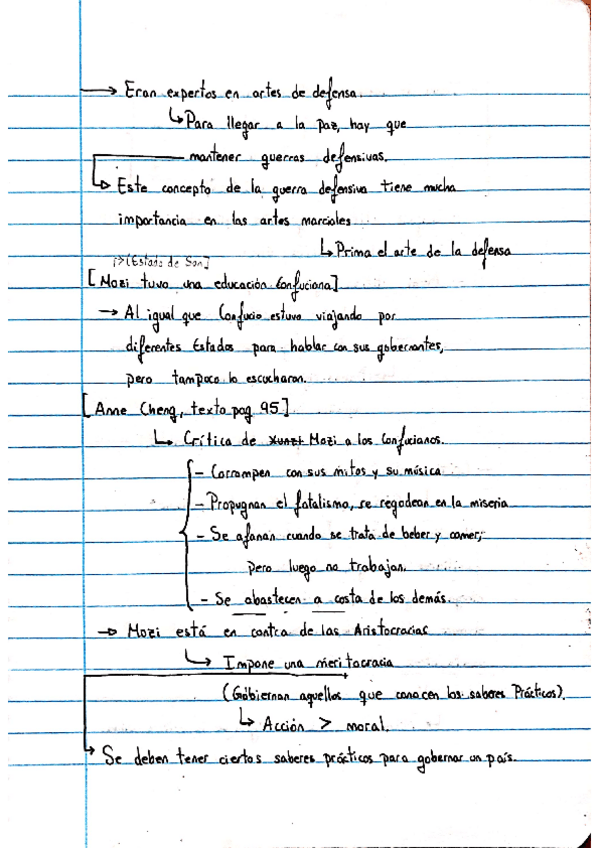 → Eran expertos en artes de defensa.
↳ Para llegar a la paz, hay que
mantener guerras defensivas.
↳ Este concepto de la guerra defensiva tiene mucha
importancia en las artes marciales
↳ Prima el arte de la defensa
↱ [Estado de Son]
[Mozi tuvo una educación Confuciana]
→ Al igual que Confucio estuvo viajando por
diferentes Estados para hablar con sus gobernantes,
pero tampoco lo escucharon.
[Anne Cheng, texto pag 95]
↳ Crítica de Xunzi Mozi a los Confucianos.
- Corrompen con sus mitos y su música
- Propugnan el fatalismo, se regodean en la miseria
- Se afanan cuando se trata de beber y comer;
pero luego no trabajan.
- Se abastecen a costa de los demás.
→ Mozi está en contra de las Aristocracias
↳ Impone una meritocracia
(Gobiernan aquellos que conocen los saberes Prácticos).
↳ Acción > moral.
↳ Se deben tener ciertos saberes prácticos para gobernar un país.